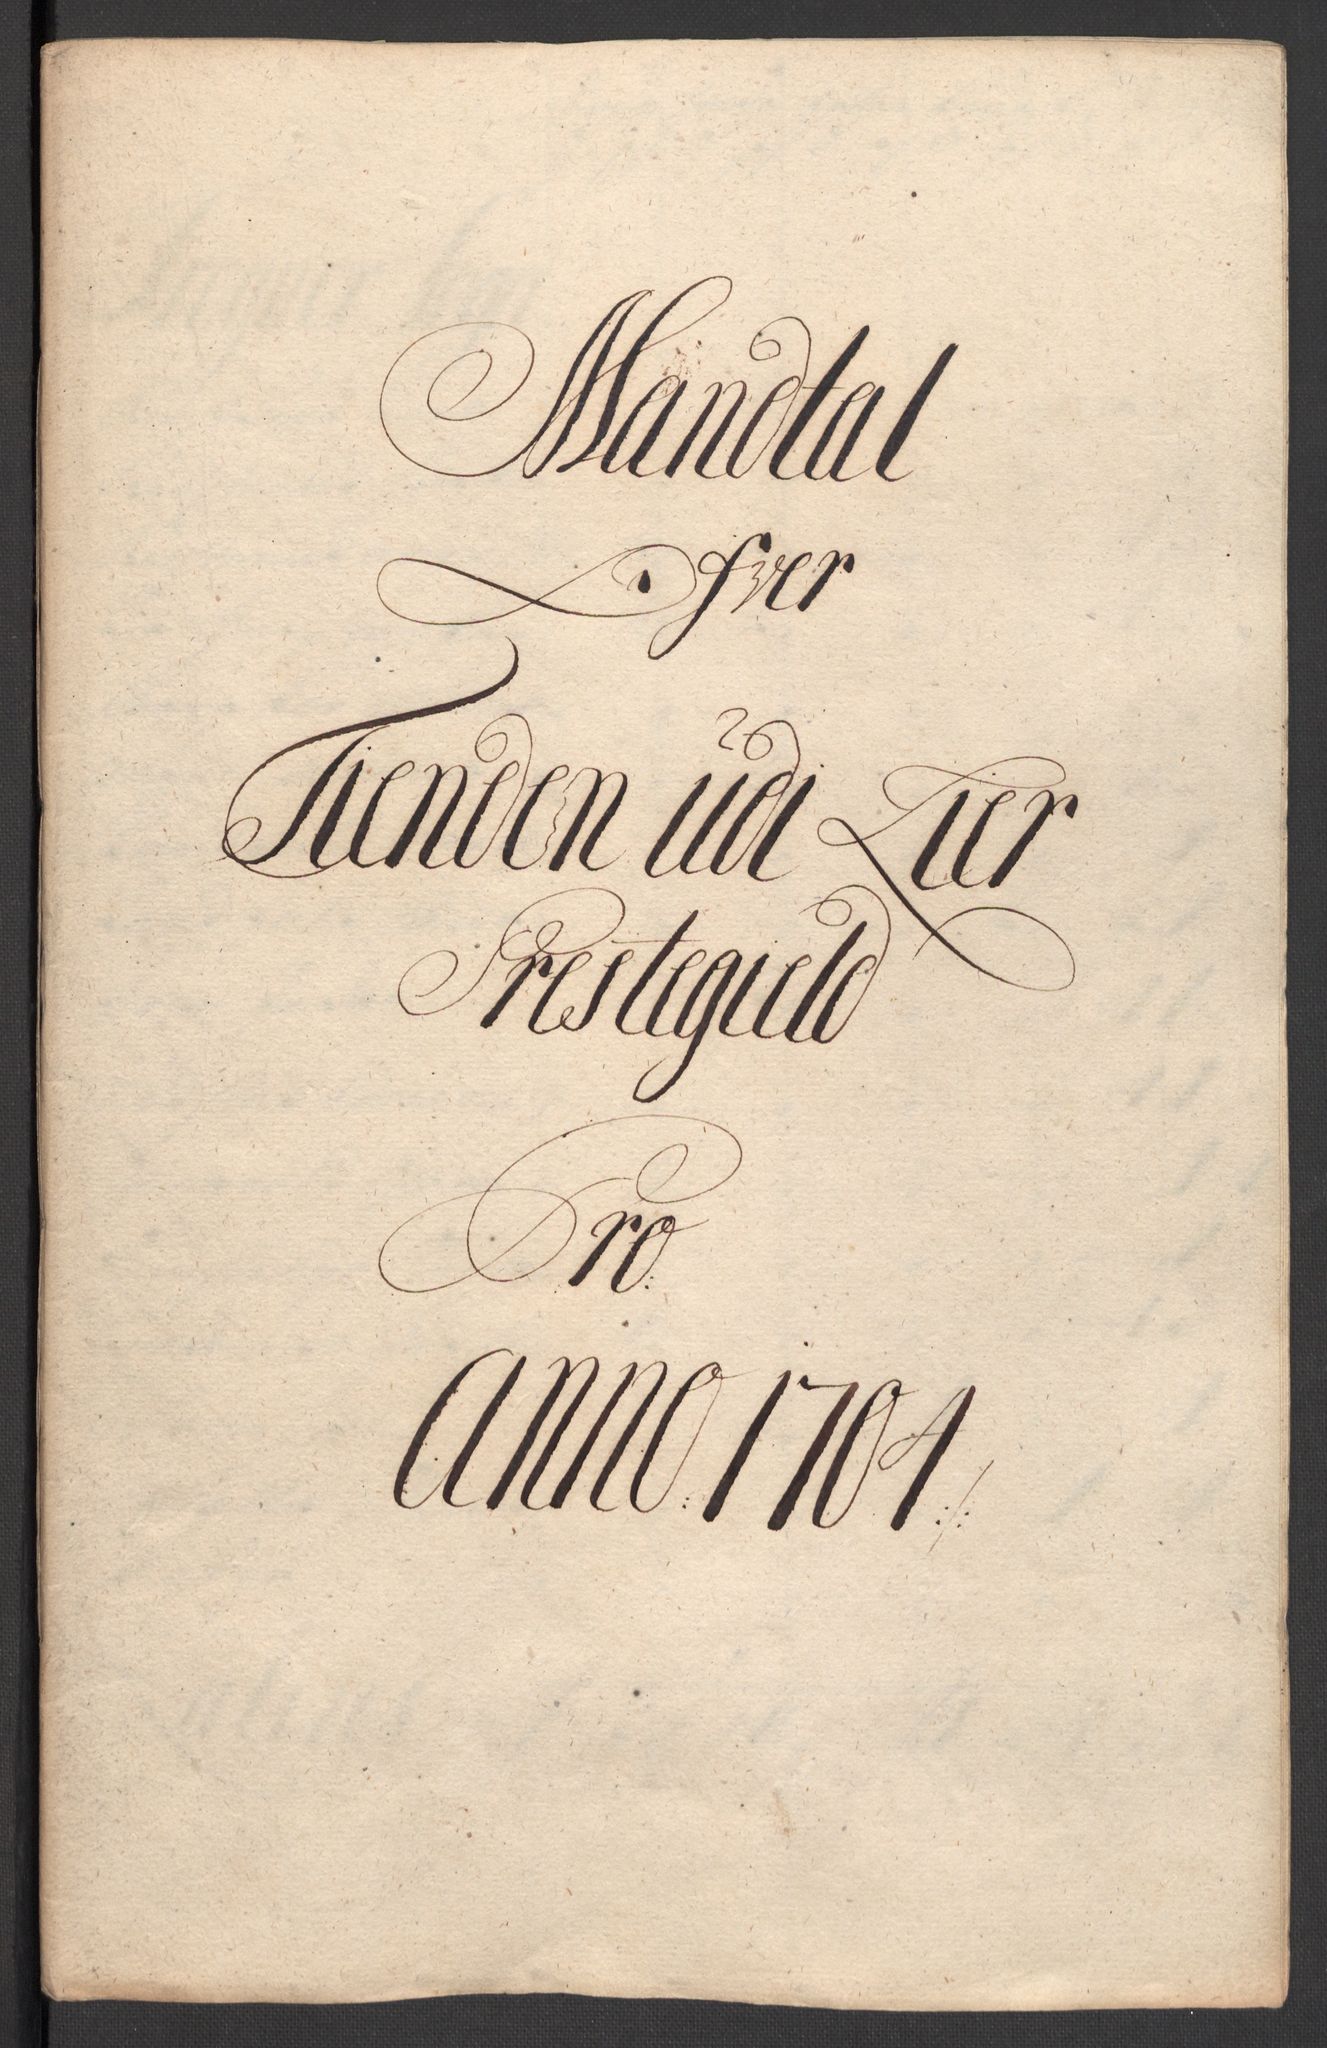 Mandtal
ofver
Tienden udi Lier
Prestegield
Pro
Anno 1704